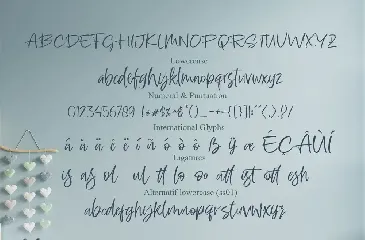 ABCDEFGHIJKLMNOPQRSTUVWXYZ
Lowercase
abcdefghijklmnopqrstuvwxyz
Numeral & Punctuation
0123456789
International Glyphs
á à ä è ë ï ñ ó ò ö ß ÿ æ ÉÇÂÙÍ
Ligatures
is as ol ul tt lo oo att ist ott esh
Alternatif lowercase (ss01)
abcdefghijklmnopqrstuvwxyz